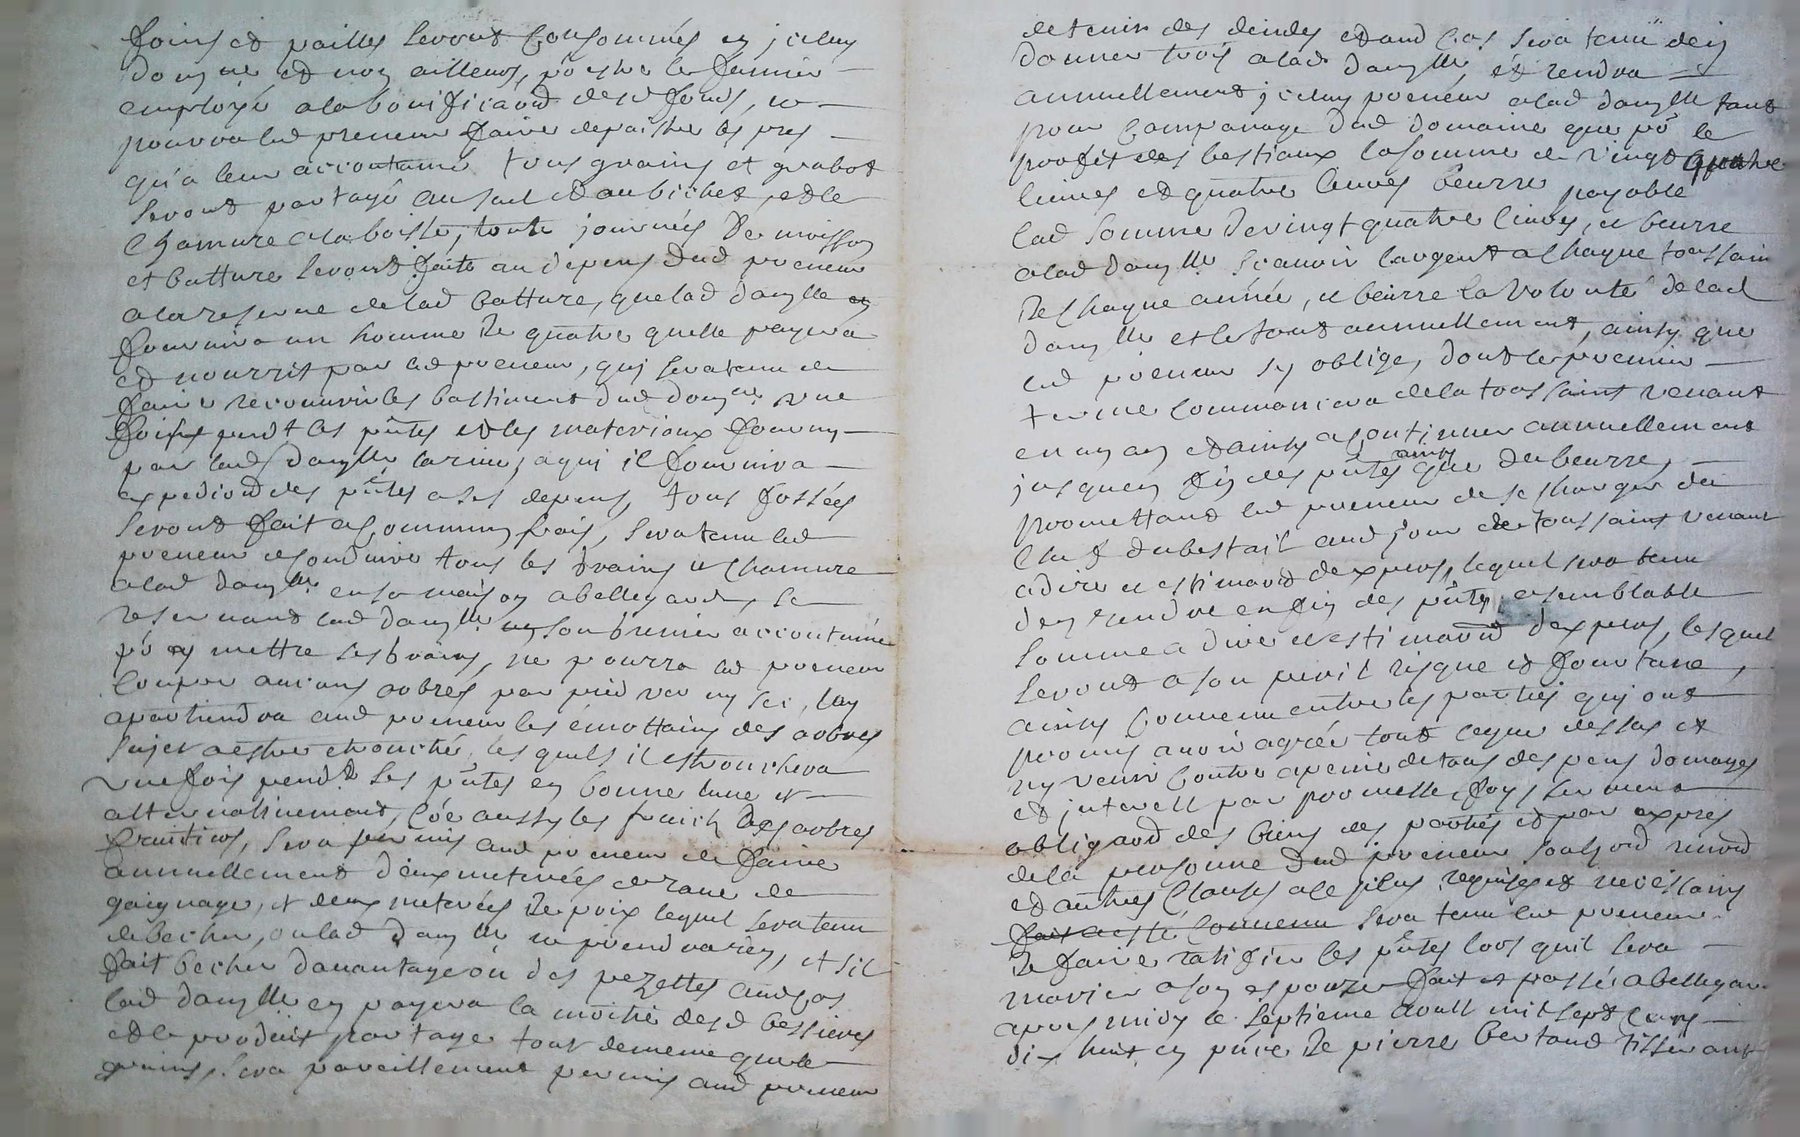 foins et pailles seront consommés en iceluy
domne et non ailleurs, po estre le fumier
employé a la bonificaõn desd fonds, ne
pourra led preneur faire depaistre les pres
qu'a leur accoutumé tous grains et grabot
seront partagé au sol et au bichet, et le
chamure a la boiste, toute journées de moisson
et batture seront faite au depens dud preneur
a la reserve de lad batture, que lad damlle en
fournira un homme de quatre quelle payera
et nourrit par led preneur, qui sera tenu de
faire recouvrir les bastiments dud domne une
fois pendt les pñtes et les materiaux fourny
par lad damlle a qui il fournira
expediõn des pñtes a ses depens, tous fossées
seront fait a communs frais, sera tenu led
preneur conduire tous les grains et chamure
a lad damlle en sa maison a bellegarde, se
reservant lad damlle son grenier accoutumé
po y mettre ses grains, ne pourra led preneur
couper aucuns arbres par pied ver ny sec, luy
apartiendra aud preneur les émottains des arbres
sujet a estre etronché, les quels il estronchera
une fois pendt les pñtes en bonne lune et
alternativement, coe aussy les fruich des arbres
fruitiers, sera permis aud preneur de faire
annuellement deux meterées de rave de
gaignage, et deux meterées de poix lequel sera tenu
de becher, ou lad damlle ne prendra rien, et sil
fait becher davantage ou des pezettes aud cas
lad damlle en payera la moitié desd
et le produit partage tout de meme que le
grains, sera pareillement permis aud preneur
de tenir des dindes et aud cas sera tenu den
donner trois a lad damlle, et rendra
annuellement iceluy preneur a lad damlle tant
pour companage dud domaine que po le
profit des bestiaux la somme de vingt quatre
livres et quatre livres beurre payable
lad somme de vingt quatre livres, et beurre
a lad damlle scavoir l'argent a chaque toussain
de chaque année, et beurre la volonté de lad
damlle et le tout annuellement, ainsy que
led preneur sy oblige, dont le premier
terme commancera de la toussaint venant
en un an et ainsy a continuer annuellement
jusquen fin des pñtes ainsy que du beurre,
promettant led preneur de se charger du
du bestail aud jour de toussaint venant
a dire et estimaõn dexpers, lequel sera tenu
den rendre en fin des pñtes a semblable
somme a dire et estimaõn dexpers, lesquel
seront a son peril risque et fourtune,
ainsy convenu entre les parties qui ont
promis avoir agréé tout ce que dessus et
ny venir contre a peine de tous despens domages
et interest par promesse, foy, serment
obligaõn des biens des parties et par expres
de la personne dud preneur renõn
et autres clauses a ce plus requises et necessaires
fait a esté convenu sera tenu led preneur
de faire ratifier les pñtes lors quil sera
marier a son espouze fait et passé a bellegarde
apres midy le septieme aoust mil sept cens
dix huit en pñce de pierre bertand tisserant